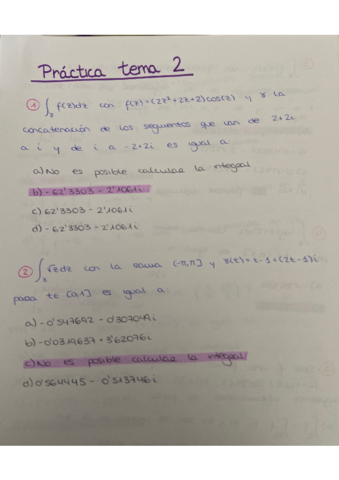 Práctica tema 2
① ∫γ f(z)dz con f(z)=(2z²+2z+2)cos(z) y γ la
concatenación de los segmentos que van de 2+2i
a i y de i a -2+2i es igual a:
a) No es posible calcular la integral
b) -62'3303 - 2'1061i
c) 62'3303 - 2'1061i
d) -62'3303 - 2'1061i
② ∫γ √z dz con la rama (-π,π] y γ(t)=t-1+(2t-1)i
para t∈[0,1] es igual a:
a) -0'547692 - 0'307049i
b) -0'0319637 + 3'62076i
c) No es posible calcular la integral
d) 0'564445 - 0'513746i